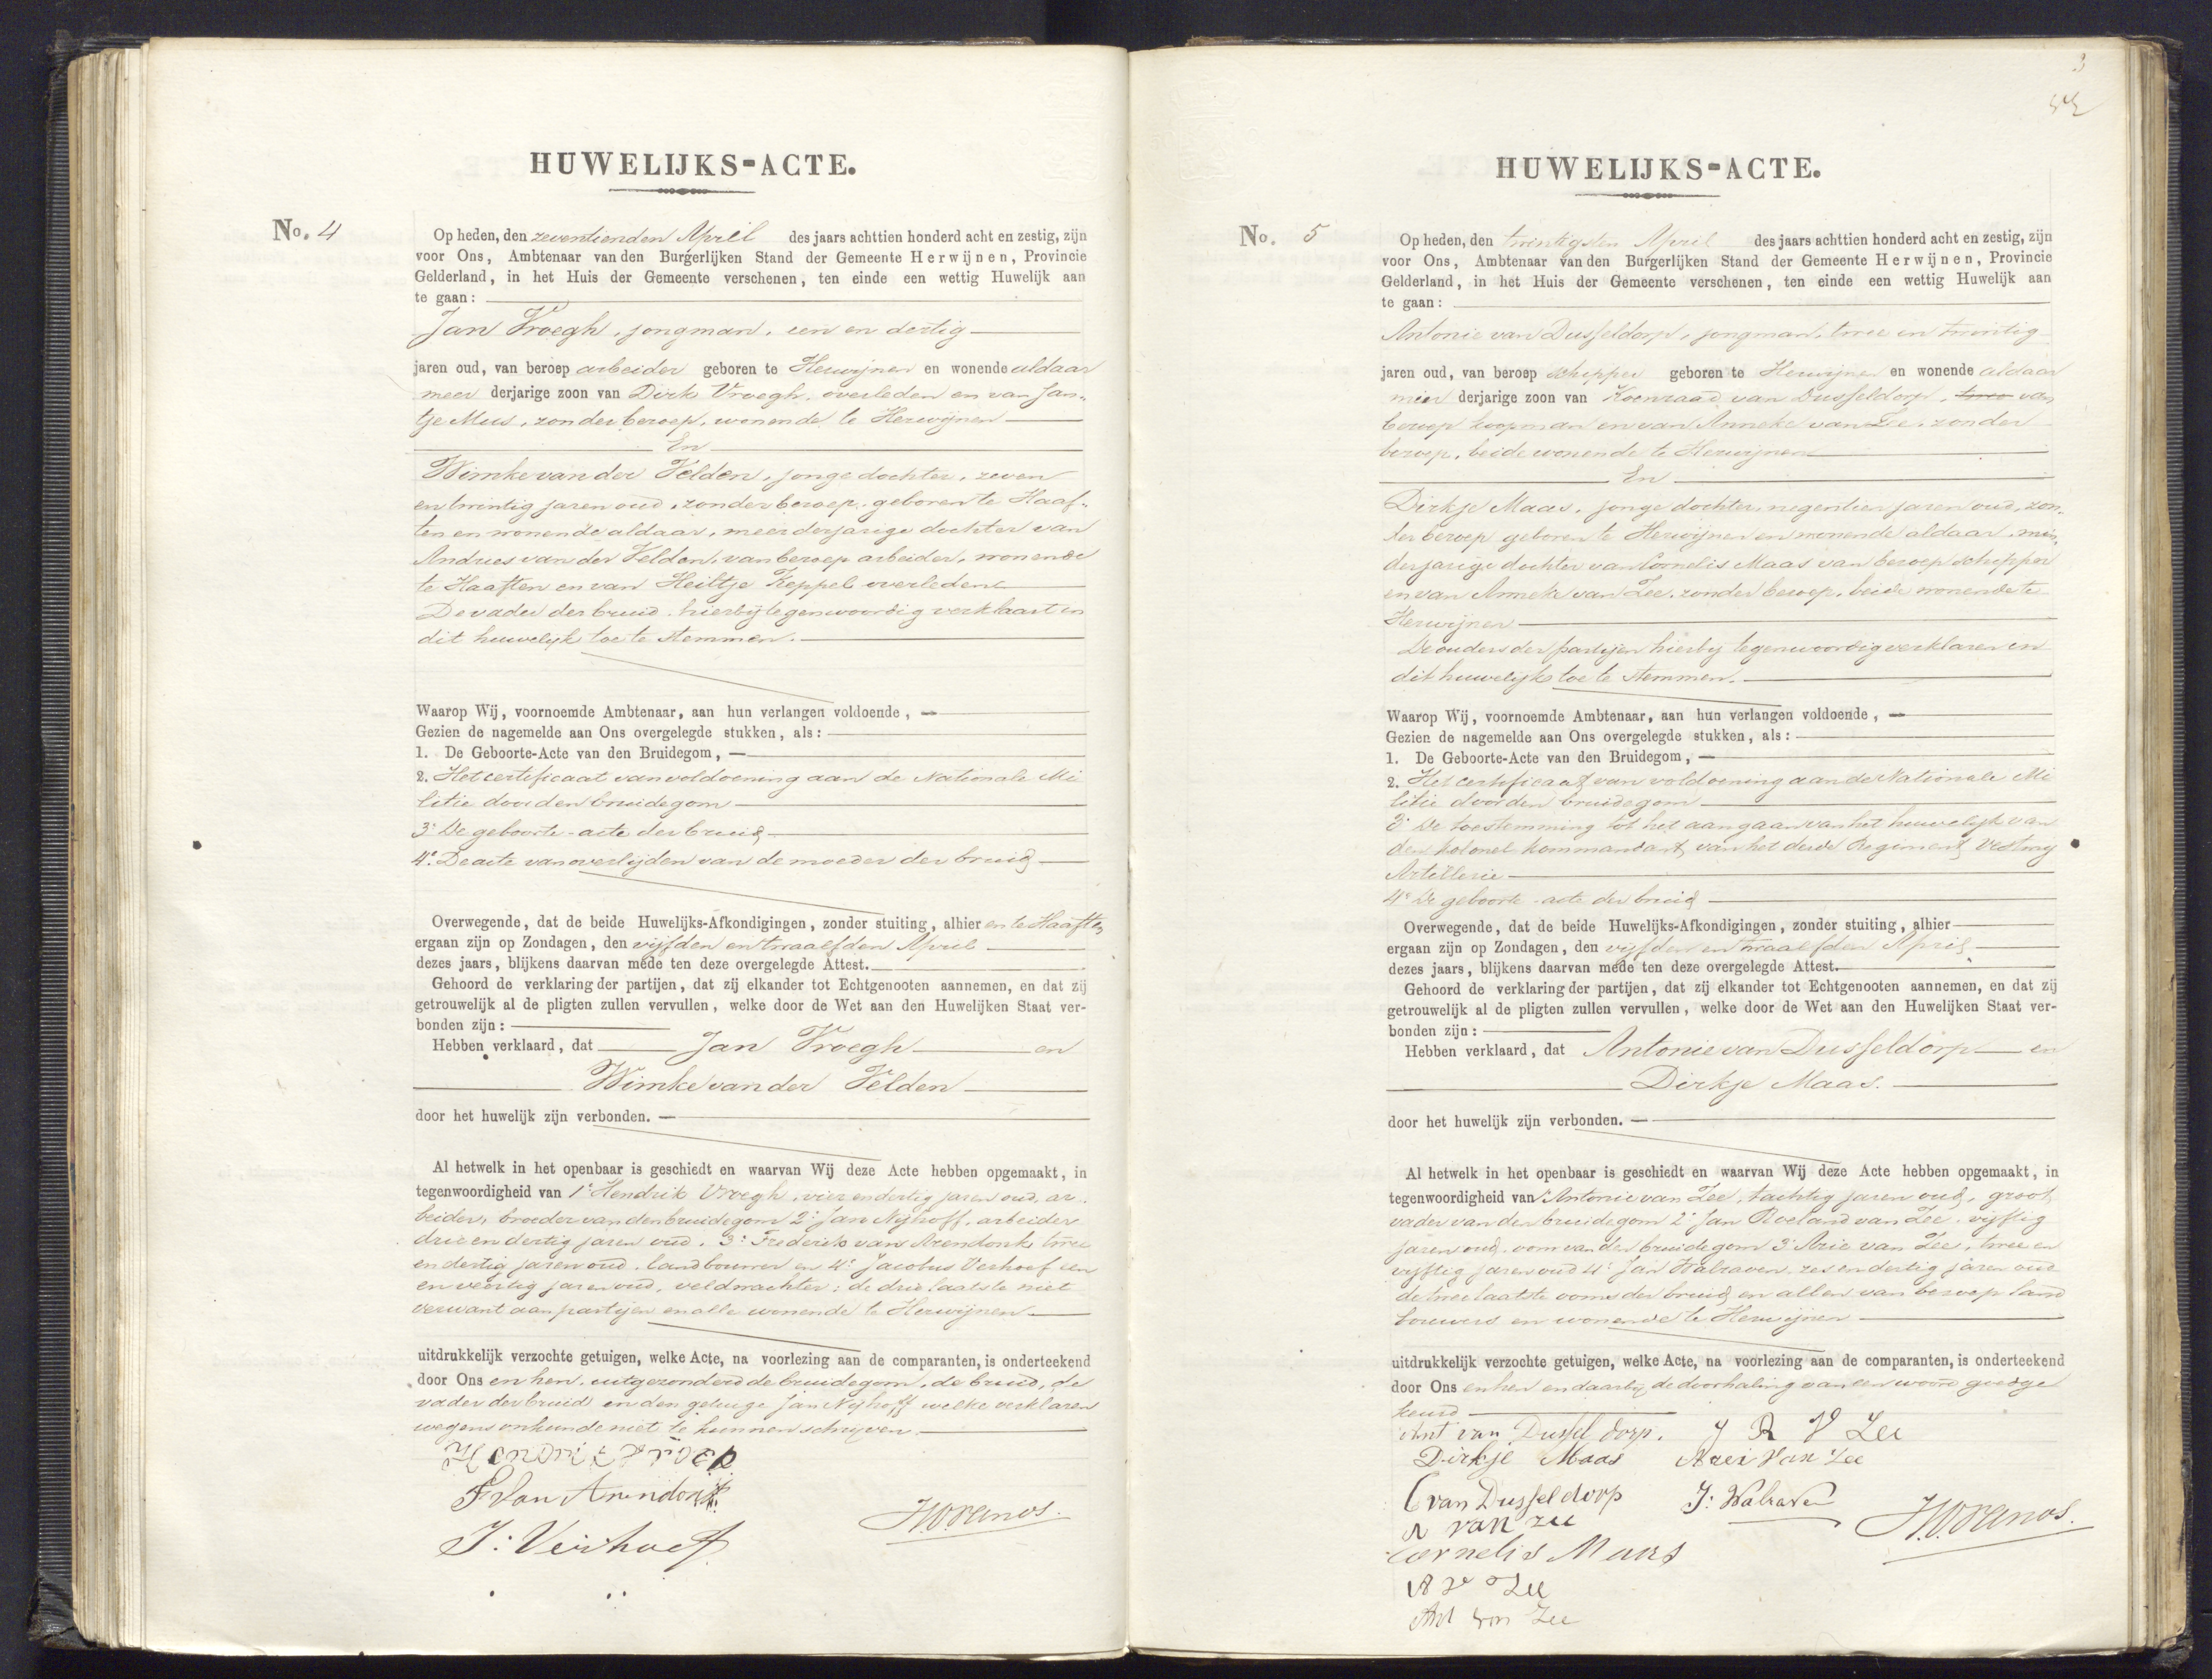 HUWELIJKS-ACTE.
No. 4
Op heden, den zeventienden April des jaars achttien honderd acht en zestig, zijn
voor Ons, Ambtenaar van den Burgerlijken Stand der Gemeente Herwijnen, Provincie
Gelderland, in het Huis der Gemeente verschenen, ten einde een wettig Huwelijk aan
te gaan:
Jan Vroegh, jongman, een en dertig
jaren oud, van beroep arbeider geboren te Herwijnen en wonende aldaar
meer derjarige zoon van Dirk Vroegh, overleden en van Jan-
tje Mus, zonder beroep, wonende te Herwijnen
En
Wimke van der Velden, jonge dochter, zeven
en twintig jaren oud, zonder beroep, geboren te Haaf-
ten en wonende aldaar, meerderjarige dochter van
Andries van der Velden, van beroep arbeider, wonende
te Haaften en van Heiltje Keppel overleden
De vader der bruid hierbij tegenwoordig verklaart in
dit huwelijk toe te stemmen.
Waarop Wij, voornoemde Ambtenaar, aan hun verlangen voldoende,
Gezien de nagemelde aan Ons overgelegde stukken, als:
1. De Geboorte-Acte van den Bruidegom,
2. Het certificaat van voldoening aan de Nationale Mi
litie door den bruidegom
3° De geboorte-acte der bruid
4° De acte van overlijden van de moeder der bruid
Overwegende, dat de beide Huwelijks-Afkondigingen, zonder stuiting, alhier en te Haaften
ergaan zijn op Zondagen, den vijfden en twaalfden April
dezes jaars, blijkens daarvan mede ten deze overgelegde Attest.
Gehoord de verklaring der partijen, dat zij elkander tot Echtgenooten aannemen, en dat zij
getrouwelijk al de pligten zullen vervullen, welke door de Wet aan den Huwelijken Staat ver-
bonden zijn:
Hebben verklaard, dat Jan Vroegh en
Wimke van der Velden
door het huwelijk zijn verbonden.
Al hetwelk in het openbaar is geschiedt en waarvan Wij deze Acte hebben opgemaakt, in
tegenwoordigheid van 1° Hendrik Vroegh, vier en dertig jaren oud, ar-
beider, broeder van den bruidegom 2° Jan Nijhoff, arbeider
drie en dertig jaren oud. 3° Frederik van Arendonk twee
en dertig jaren oud, landbouwer en 4° Jacobus Verhoef een
en veertig jaren oud, veldwachter; de drie laatste niet
verwant aan partijen en alle wonende te Herwijnen
uitdrukkelijk verzochte getuigen, welke Acte, na voorlezing aan de comparanten, is onderteekend
door Ons en hen, uitgezonderd de bruidegom, de bruid, de
vader der bruid en den getuige Jan Nijhoff welke verklaren
wegens onkunde niet te kunnen schrijven.
Hendrik Vroeg
F Van Arendonk
J: Verhoef
HUWELIJKS-ACTE.
No. 5
Op heden, den twintigsten April des jaars achttien honderd acht en zestig, zijn
voor Ons, Ambtenaar van den Burgerlijken Stand der Gemeente Herwijnen, Provincie
Gelderland, in het Huis der Gemeente verschenen, ten einde een wettig Huwelijk aan
te gaan:
Antonie van Dusseldorp, jongman, twee en twintig
jaren oud, van beroep schipper geboren te Herwijnen en wonende aldaar
min derjarige zoon van Koenraad van Dusseldorp, van
beroep koopman en van Anneke van Zee, zonder
beroep, beide wonende te Herwijnen
En
Dirkje Maas, jonge dochter, negentien jaren oud, zon-
der beroep geboren te Herwijnen en wonende aldaar, min-
derjarige dochter van Cornelis Maas van beroep schipper
en van Anneke van Zee, zonder beroep, beide wonende te
Herwijnen
De ouders der partijen hierbij tegenwoordig verklaren in
dit huwelijk toe te stemmen.
Waarop Wij, voornoemde Ambtenaar, aan hun verlangen voldoende,
Gezien de nagemelde aan Ons overgelegde stukken, als:
1. De Geboorte-Acte van den Bruidegom,
2. Het certificaat van voldoening aan de Nationale Mi
litie door den bruidegom
3° De toestemming tot het aangaan van het huwelijk van
den kolonel kommandant van het derde Regiment Vesting
Artillerie
4° De geboorte-acte der bruid
Overwegende, dat de beide Huwelijks-Afkondigingen, zonder stuiting, alhier
ergaan zijn op Zondagen, den vijfden en twaalfden April
dezes jaars, blijkens daarvan mede ten deze overgelegde Attest.
Gehoord de verklaring der partijen, dat zij elkander tot Echtgenooten aannemen, en dat zij
getrouwelijk al de pligten zullen vervullen, welke door de Wet aan den Huwelijken Staat ver-
bonden zijn:
Hebben verklaard, dat Antonie van Dusseldorp en
Dirkje Maas.
door het huwelijk zijn verbonden.
Al hetwelk in het openbaar is geschiedt en waarvan Wij deze Acte hebben opgemaakt, in
tegenwoordigheid van 1° Antonie van Zee, tachtig jaren oud, groot
vader van den bruidegom 2° Jan Roeland van Zee, vijftig
jaren oud, oom van den bruidegom 3° Arie van Zee, twee en
vijftig jaren oud 4° Jan Walraven, zes en dertig jaren oud
de twee laatste ooms der bruid en allen van beroep land
bouwers en wonende te Herwijnen
uitdrukkelijk verzochte getuigen, welke Acte, na voorlezing aan de comparanten, is onderteekend
door Ons en hen en daarbij de doorhaling van een woord goedge
keurd
Ant van Dusseldorp. J R V Zee
Dirkje Maas Arei Van Zee
C van Dusseldorp J: Walraven
A van zee
Cornelis Maas
A v Zee
Ant van Zee